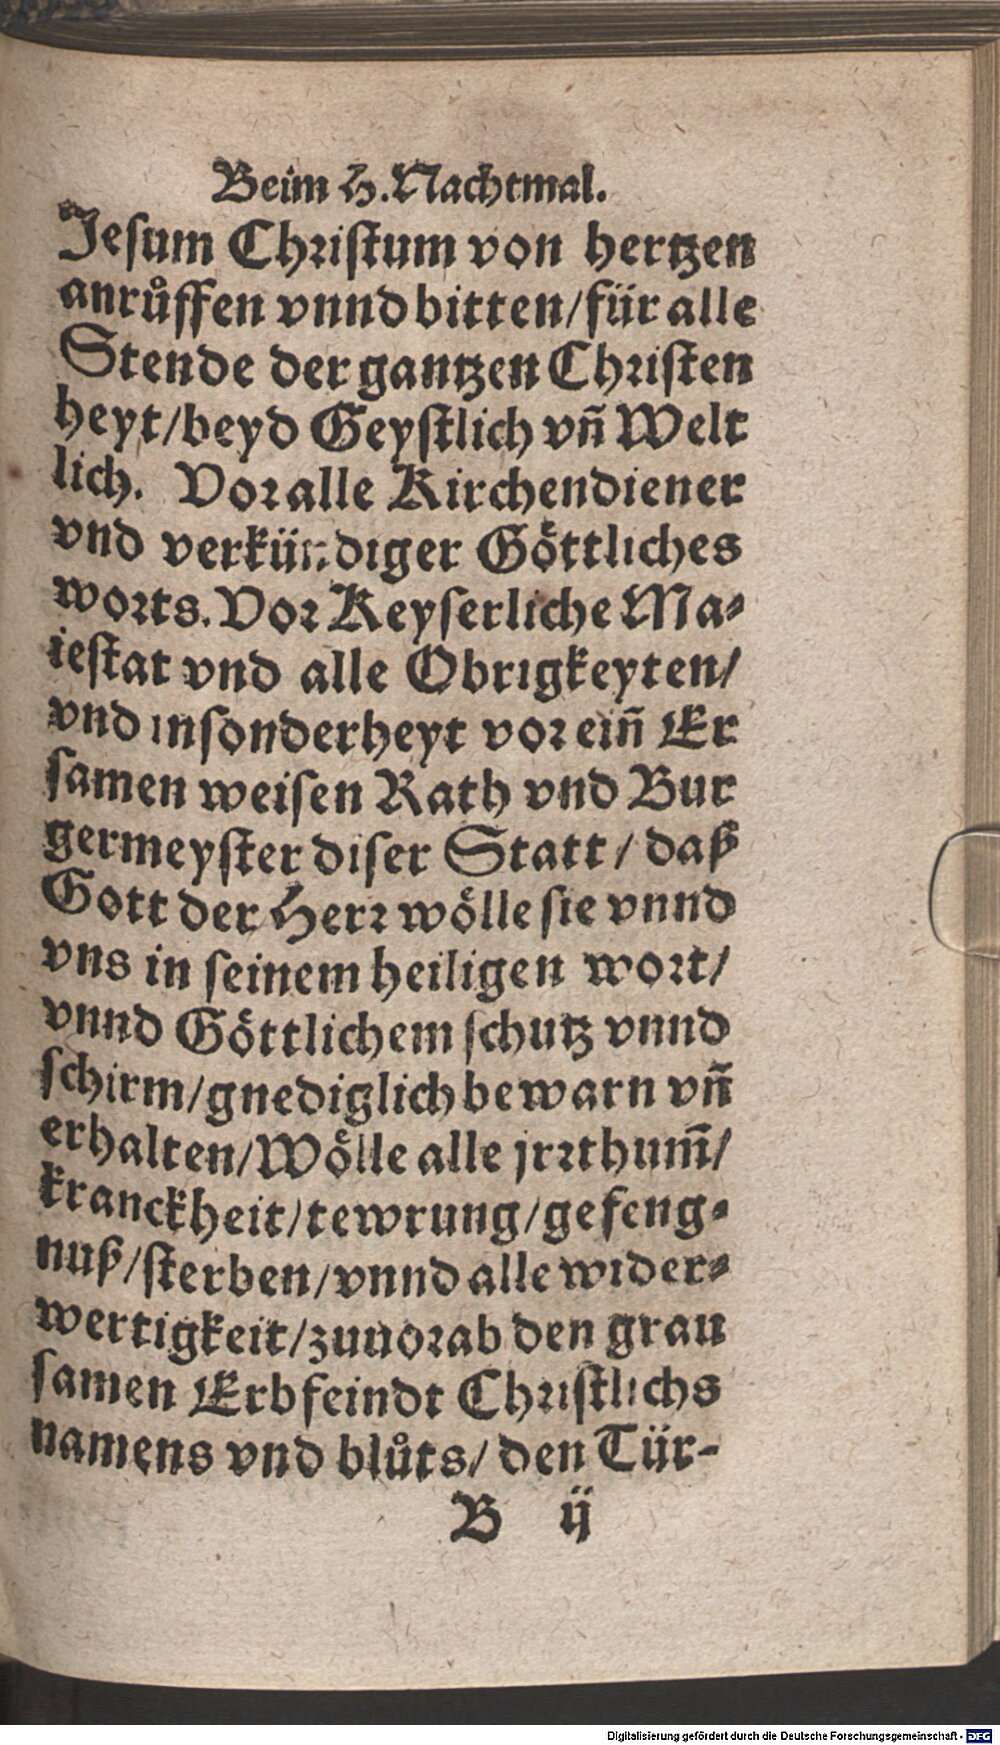 Beim H. Nachtmal.
Jesum Christum von hertzen
anrůffen vnnd bitten/für alle
Stende der gantzen Christen
heyt/beyd Geystlich vñ Welt
lich. Vor alle Kirchendiener
vnd verkündiger Göttliches
worts. Vor Keyserliche Ma⸗
iestat vnd alle Obrigkeyten/
vnd insonderheyt vor einñ Er
samen weisen Rath vnd Bur
germeyster diser Statt/daß
Gott der Herr wölle sie vnnd
vns in seinem heiligen wort/
vnnd Göttlichem schutz vnnd
schirm/gnediglich bewarn vñ
erhalten/Wölle alle jrrthum̃/
kranckheit/tewrung/gefeng⸗
nuß/sterben/vnnd alle wider⸗
wertigkeit/zuuorab den grau
samen Erbfeindt Christlichs
namens vnd blůts/den Tür-
B ij
Digitalisierung gefördert durch die Deutsche Forschungsgemeinschaft - DFG